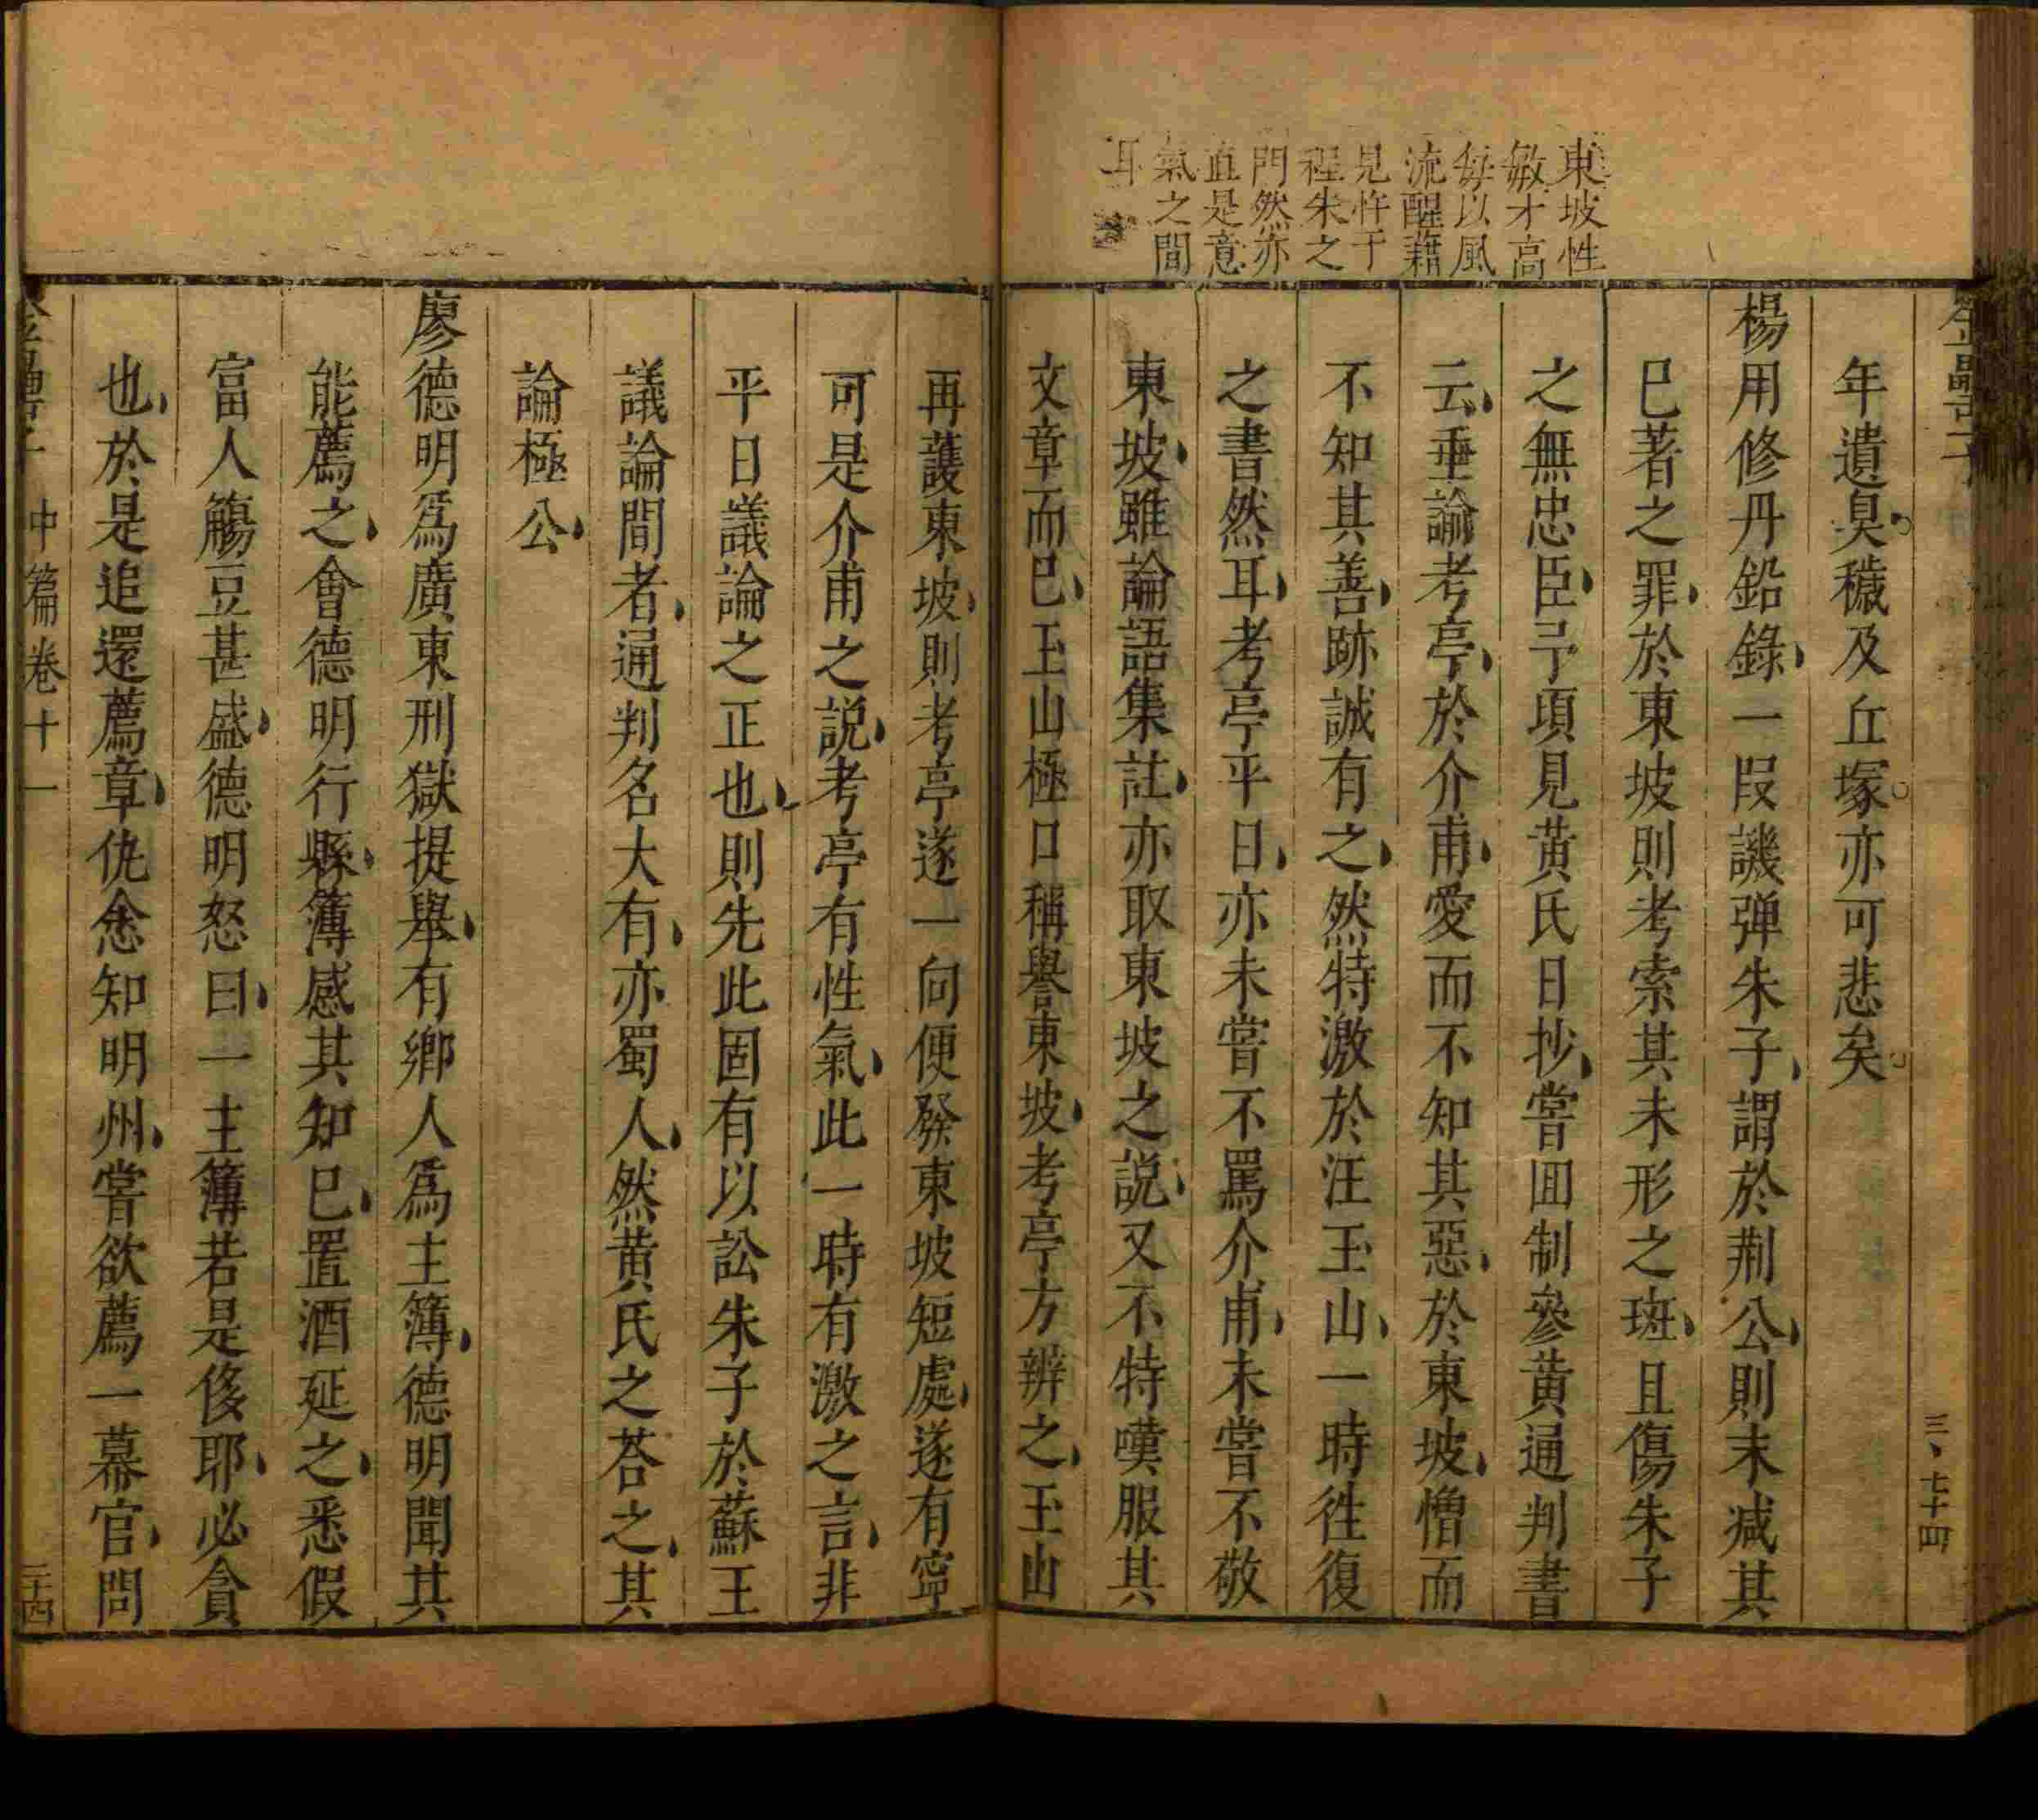 東坡性
敏才高
每以風
流醖藉
見忤于
程朱之
門然亦
直是意
氣之間
耳
三、七十四
年遺臭穢及丘塚亦可悲矣
楊用修丹鉛錄一段譏弹朱子謂於荆公則末减其
已著之罪於東坡則考索其未形之斑且傷朱子
之無忠臣予項見黄氏日抄嘗囬制參黄通判書
云垂諭考亭於介甫愛而不知其惡於東坡憎而
不知其善跡誠有之然特激於汪玉山一時徃復
之書然耳考亭平日亦未嘗不罵介甫未嘗不敬
東坡雖論語集註亦取東坡之説又不特嘆服其
文章而已玉山極口稱譽東坡考亭方辨之玉山
再護東坡則考亭遂一向便發東坡短處遂有寧
可是介甫之説考亭有性氣此一時有激之言非
平日議論之正也則先此固有以訟朱子於蘇王
議論間者通判名大有亦蜀人然黄氏之荅之其
論極公
廖德明爲廣東刑獄提舉有鄉人爲主簿德明聞其
能薦之會德明行縣簿感其知已置酒延之悉假
富人觴豆甚盛德明怒曰一主簿若是侈耶必貪
也於是追還薦章仇悆知明州嘗欲薦一幕官問
中篇卷十一
二十四